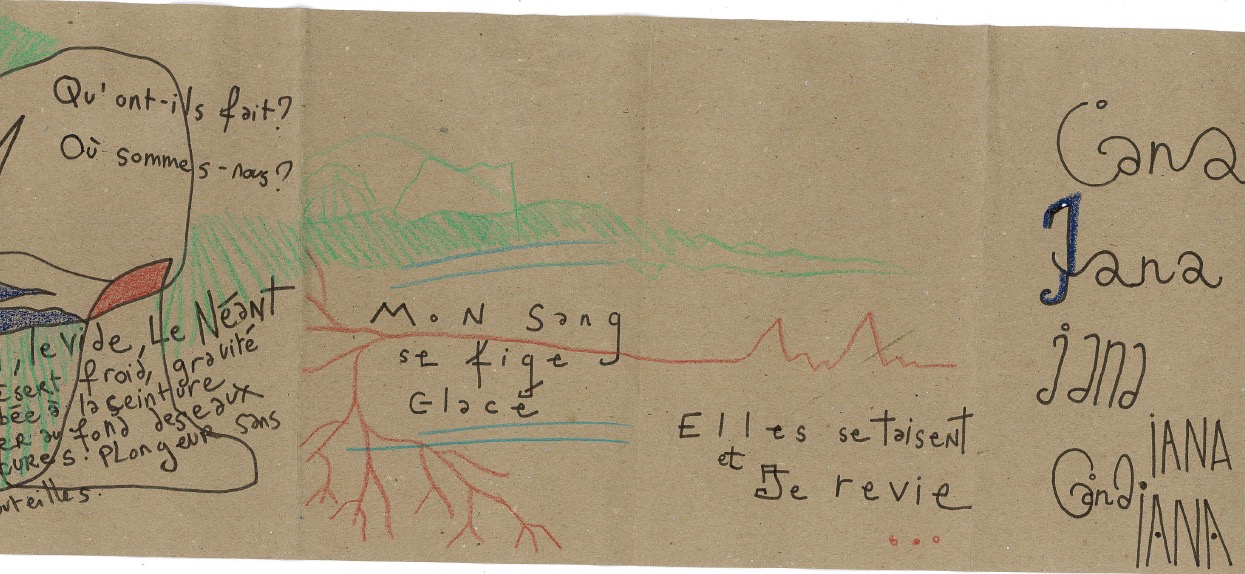 Qu'ont-ils fait?
Où sommes-nous?
, le vide, Le NéanT
froid, gravité
à la seinture
au fond des eaux
PLongeur sans
MoN Sang
se fige
Glacé
Elles se taisent
et
Je revie
...
Cana
Jana
jana
iANA
iANA